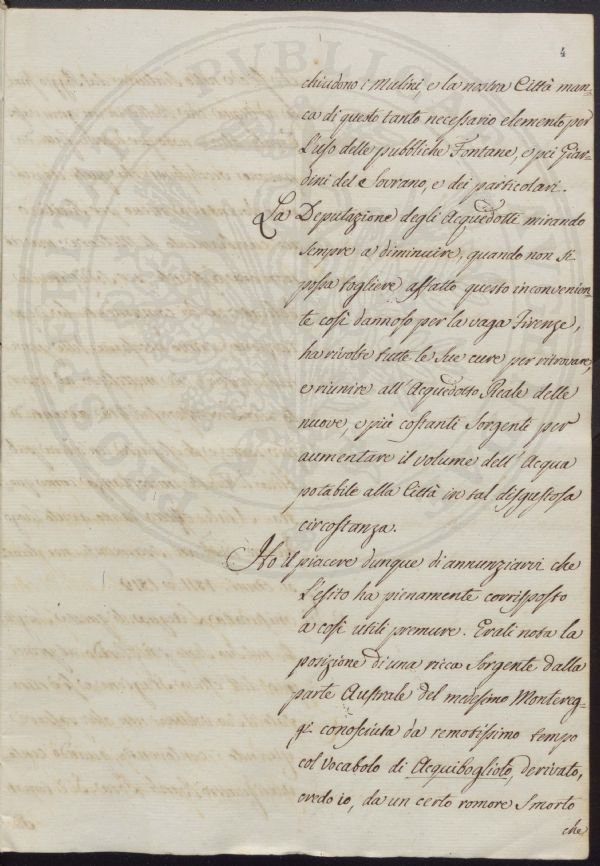 4
chiudono i Mulini, e la nostra Città man=
ca di questo tanto necessario elemento per
l'uso delle pubbliche Fontane, e pei Giar=
dini del Sovrano, e dei particolari.
La Deputazione degli Acquedotti mirando
sempre a diminuire, quando non si
possa togliere affatto questo inconvenien=
te così dannoso per la vaga Firenze,
ha rivolte tutte le sue cure per ritrovare,
e riunire all'Acquedotto Reale delle
nuove, e più costanti Sorgenti per
aumentare il volume dell'Acqua
potabile alla Città in tal disgustosa
circostanza.
Ho il piacere dunque di annunziarvi che
l'esito ha pienamente corrisposto
a così utili premure. Erali nota la
posizione di una ricca Sorgente dalla
parte Australe del medesimo Montereg=
gi conosciuta da remotissimo tempo
col vocabolo di Acquibogliolo, derivato,
credo io, da un certo romore smorto
che
PROSPERITATI PUBLICAE